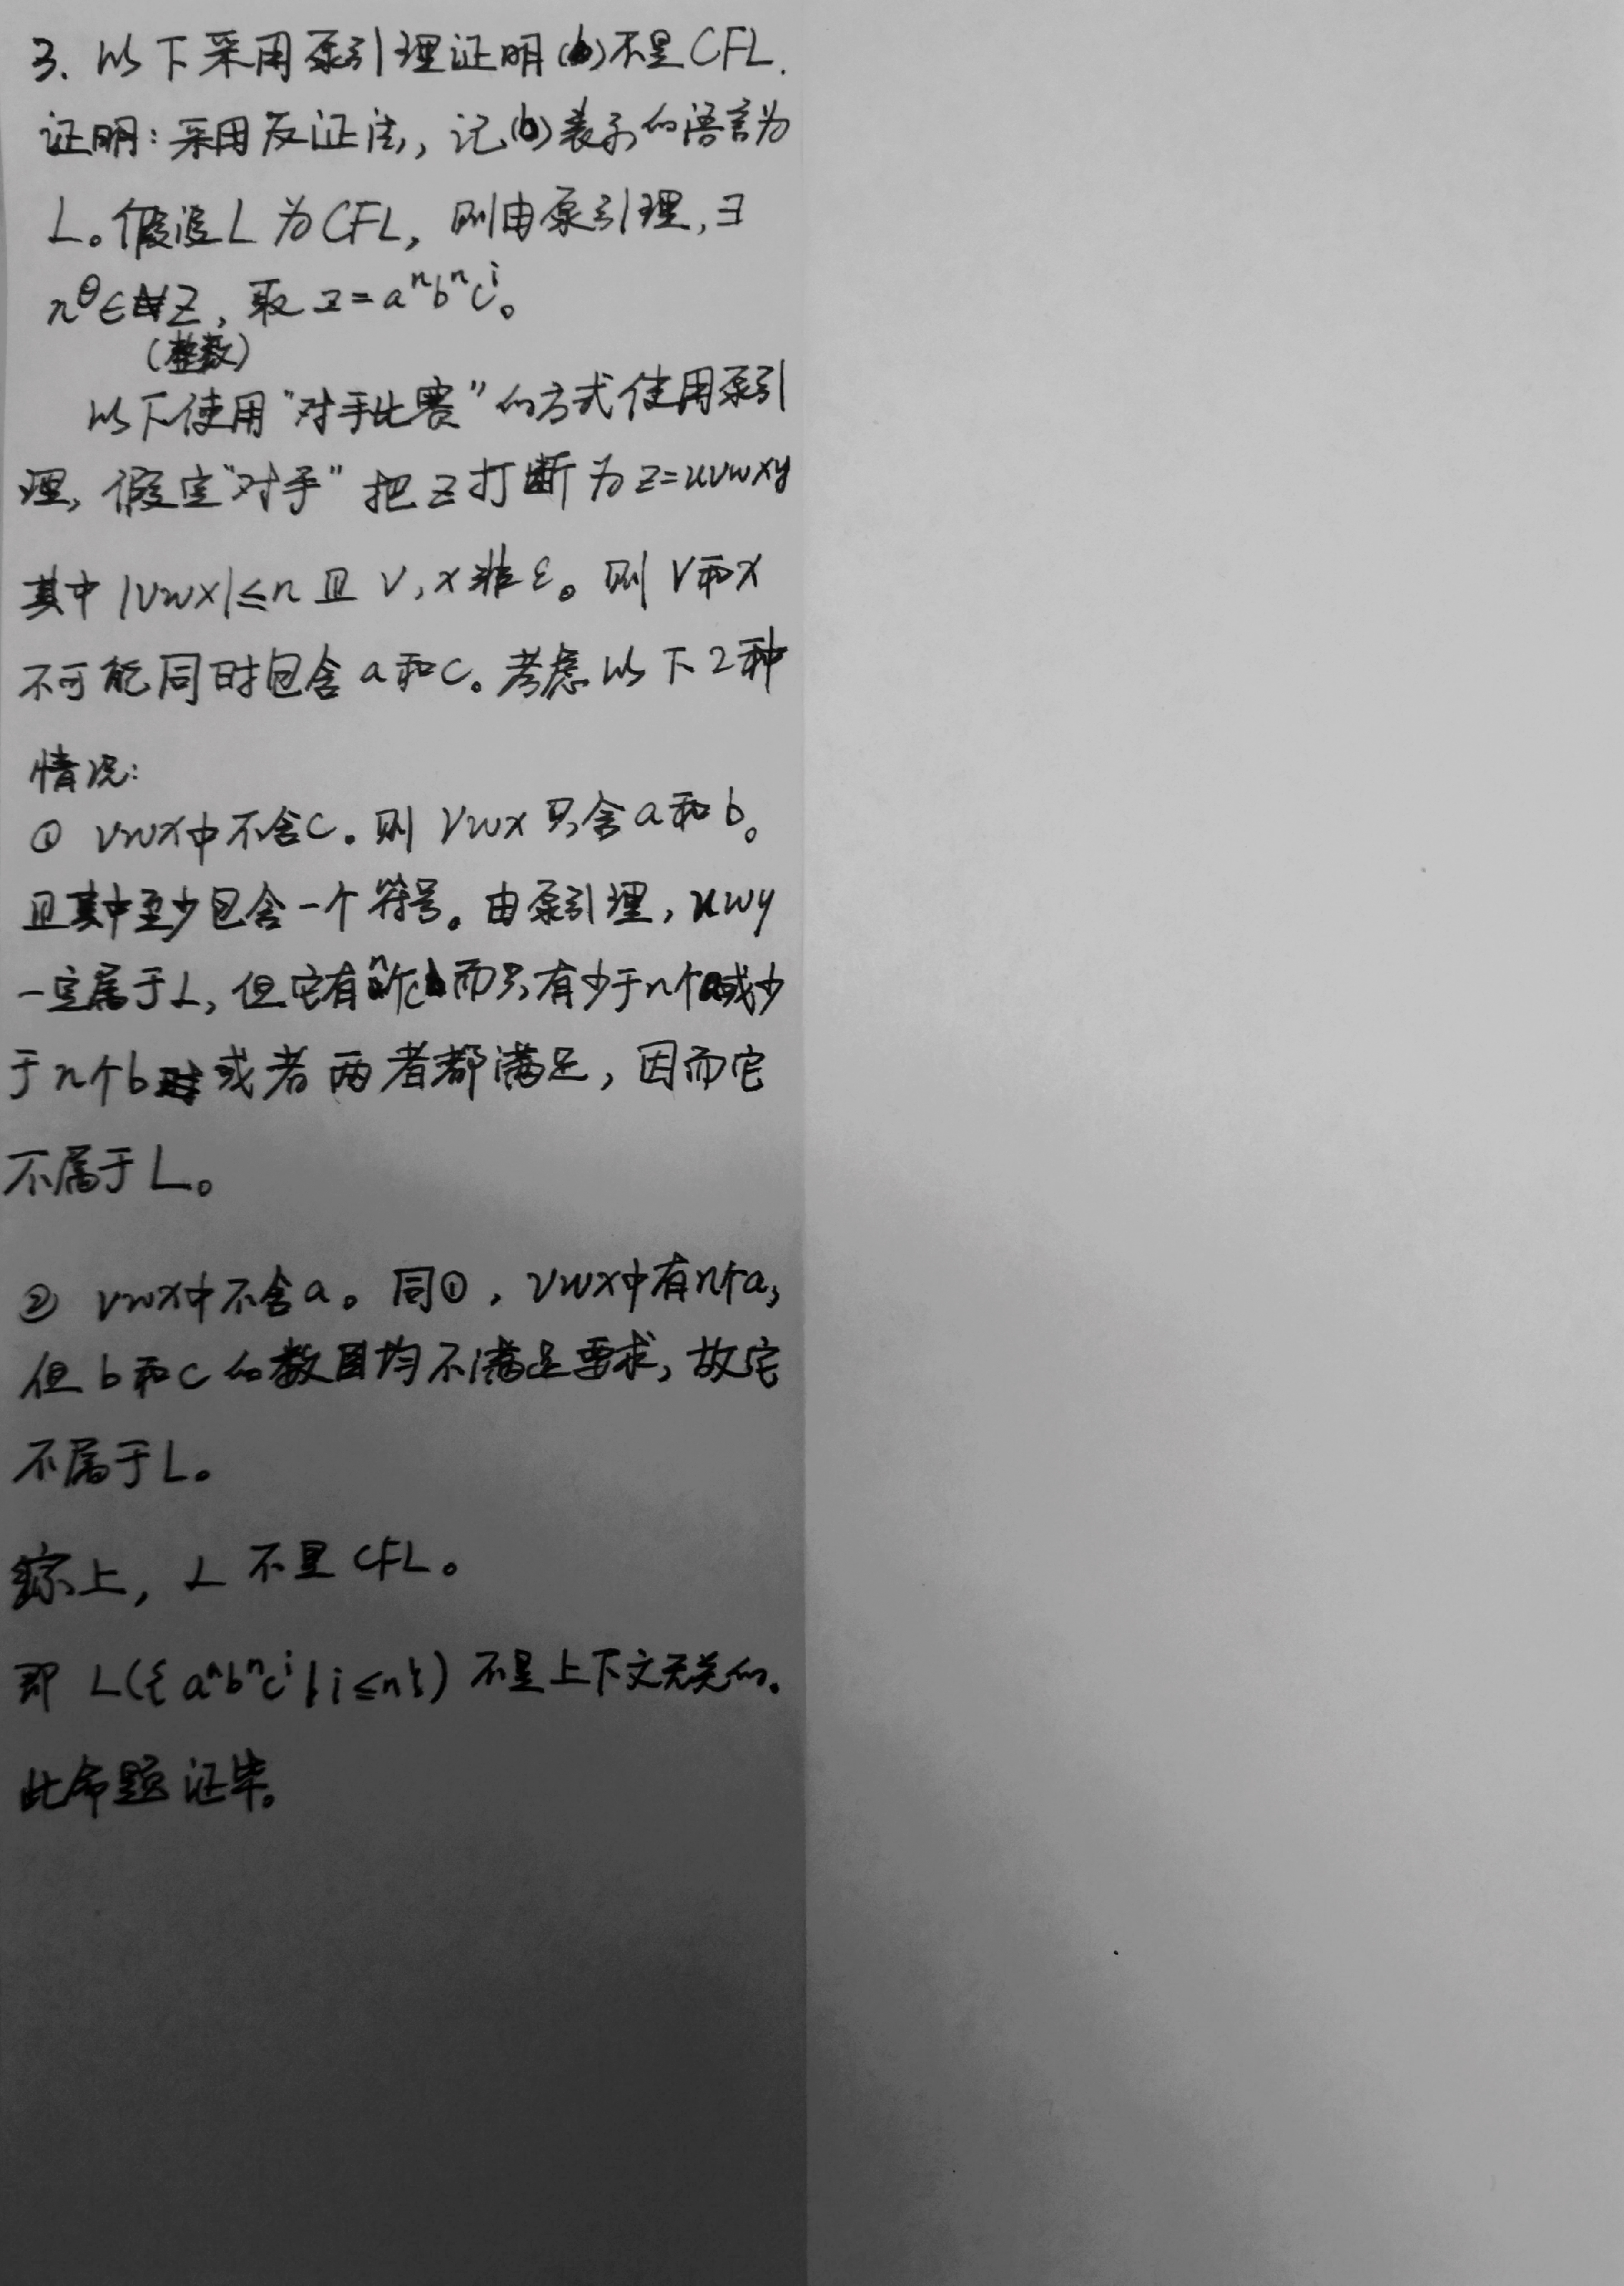 3. 以下采用泵引理证明(b)不是CFL.
证明:采用反证法,记(b)表示的语言为
L。假设L为CFL,则由泵引理,∃
n∈Z,取z=aⁿbⁿcⁱ。
(整数)
以下使用“对手比赛”的方式使用泵引
理,假定“对手”把z打断为z=uvwxy
其中|vwx|≤n且v,x非ε。则v和x
不可能同时包含a和c。考虑以下2种
情况:
① vwx中不含c。则vwx只含a和b。
且其中至少包含一个符号。由泵引理,uwy
一定属于L,但它有n个c而只有少于n个a或少
于n个b或者两者都满足,因而它
不属于L。
② vwx中不含a。同①,vwx中有n个a,
但b和c的数目均不满足要求,故它
不属于L。
综上,L不是CFL。
即L({aⁿbⁿcⁱ|i≤n})不是上下文无关的。
此命题证毕。